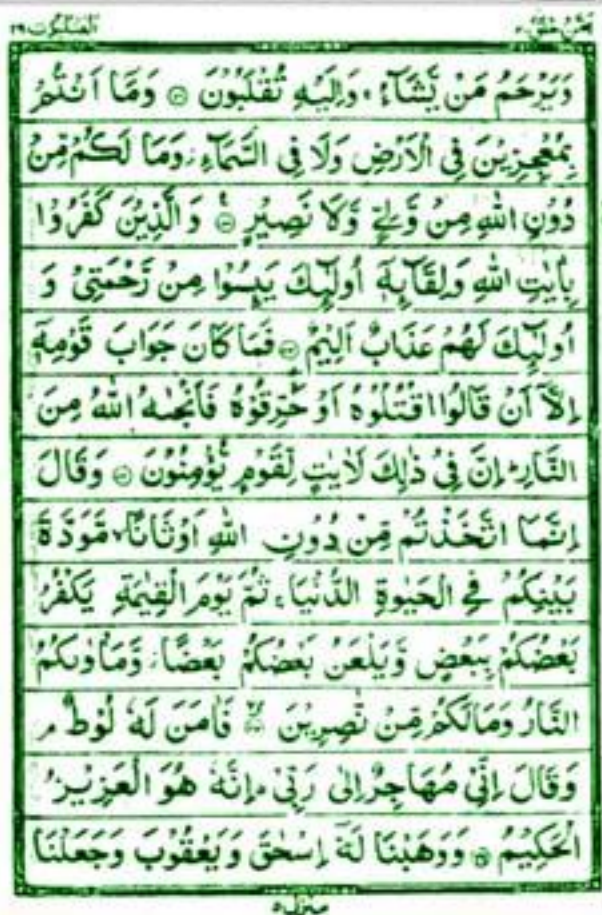 العنکبوت ۲۹
امن خلق ۲۰
وَيَرْحَمُ مَنْ يَّشَآءُ ۚ وَاِلَيْهِ تُقْلَبُوْنَ ۞ وَمَآ اَنْتُمْ
بِمُعْجِزِيْنَ فِى الْاَرْضِ وَلَا فِى السَّمَآءِ ۡ وَمَا لَكُمْ مِّنْ
دُوْنِ اللّٰهِ مِنْ وَّلِىٍّ وَّلَا نَصِيْرٍ ۞ وَالَّذِيْنَ كَفَرُوْا
بِاٰيٰتِ اللّٰهِ وَلِقَآئِهٖٓ اُولٰٓئِكَ يَئِسُوْا مِنْ رَّحْمَتِىْ وَ
اُولٰٓئِكَ لَهُمْ عَذَابٌ اَلِيْمٌ ۞ فَمَا كَانَ جَوَابَ قَوْمِهٖٓ
اِلَّآ اَنْ قَالُوا اقْتُلُوْهُ اَوْ حَرِّقُوْهُ فَاَنْجٰىهُ اللّٰهُ مِنَ
النَّارِ ؕ اِنَّ فِىْ ذٰلِكَ لَاٰيٰتٍ لِّقَوْمٍ يُّؤْمِنُوْنَ ۞ وَقَالَ
اِنَّمَا اتَّخَذْتُمْ مِّنْ دُوْنِ اللّٰهِ اَوْثَانًا ۙ مَّوَدَّةَ
بَيْنِكُمْ فِى الْحَيٰوةِ الدُّنْيَا ۚ ثُمَّ يَوْمَ الْقِيٰمَةِ يَكْفُرُ
بَعْضُكُمْ بِبَعْضٍ وَّيَلْعَنُ بَعْضُكُمْ بَعْضًا ۡ وَّمَاْوٰىكُمُ
النَّارُ وَمَا لَكُمْ مِّنْ نّٰصِرِيْنَ ۞ فَاٰمَنَ لَهٗ لُوْطٌ ۘ
وَقَالَ اِنِّىْ مُهَاجِرٌ اِلٰى رَبِّىْ ؕ اِنَّهٗ هُوَ الْعَزِيْزُ
الْحَكِيْمُ ۞ وَوَهَبْنَا لَهٗٓ اِسْحٰقَ وَيَعْقُوْبَ وَجَعَلْنَا
منزل ۵